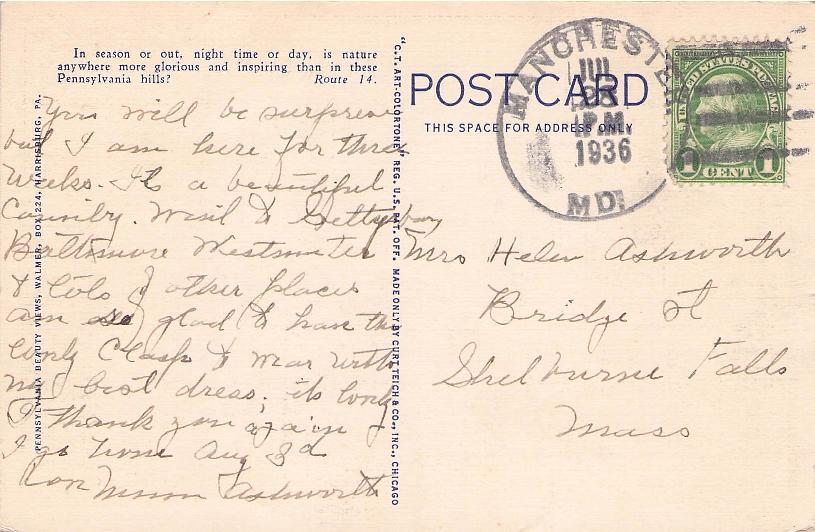 In season or out, night time or day, is nature
anywhere more glorious and inspiring than in these
Pennsylvania hills? Route 14.
You will be surprised
but I am here for three
Weeks. Its a beautiful
Country. Went to Gettysburg
Baltimore Westminster
& lots of other places
am so glad to have the
lovely Clasp to wear with
my best dress. its lovely
I thank you again
I go home Aug 3d
Ashworth
PENNSYLVANIA BEAUTY VIEWS, WALMER, BOX 224, HARRISBURG, PA.
"C.T. ART-COLORTONE" REG. U.S. PAT. OFF. MADE ONLY BY CURT TEICH & CO., INC., CHICAGO
POST CARD
THIS SPACE FOR ADDRESS ONLY
MANCHESTER
JUL
P.M.
1936
MD.
UNITED STATES POSTAGE
1 CENT 1
Mrs Helen Ashworth
Bridge St
Shelburne Falls
Mass